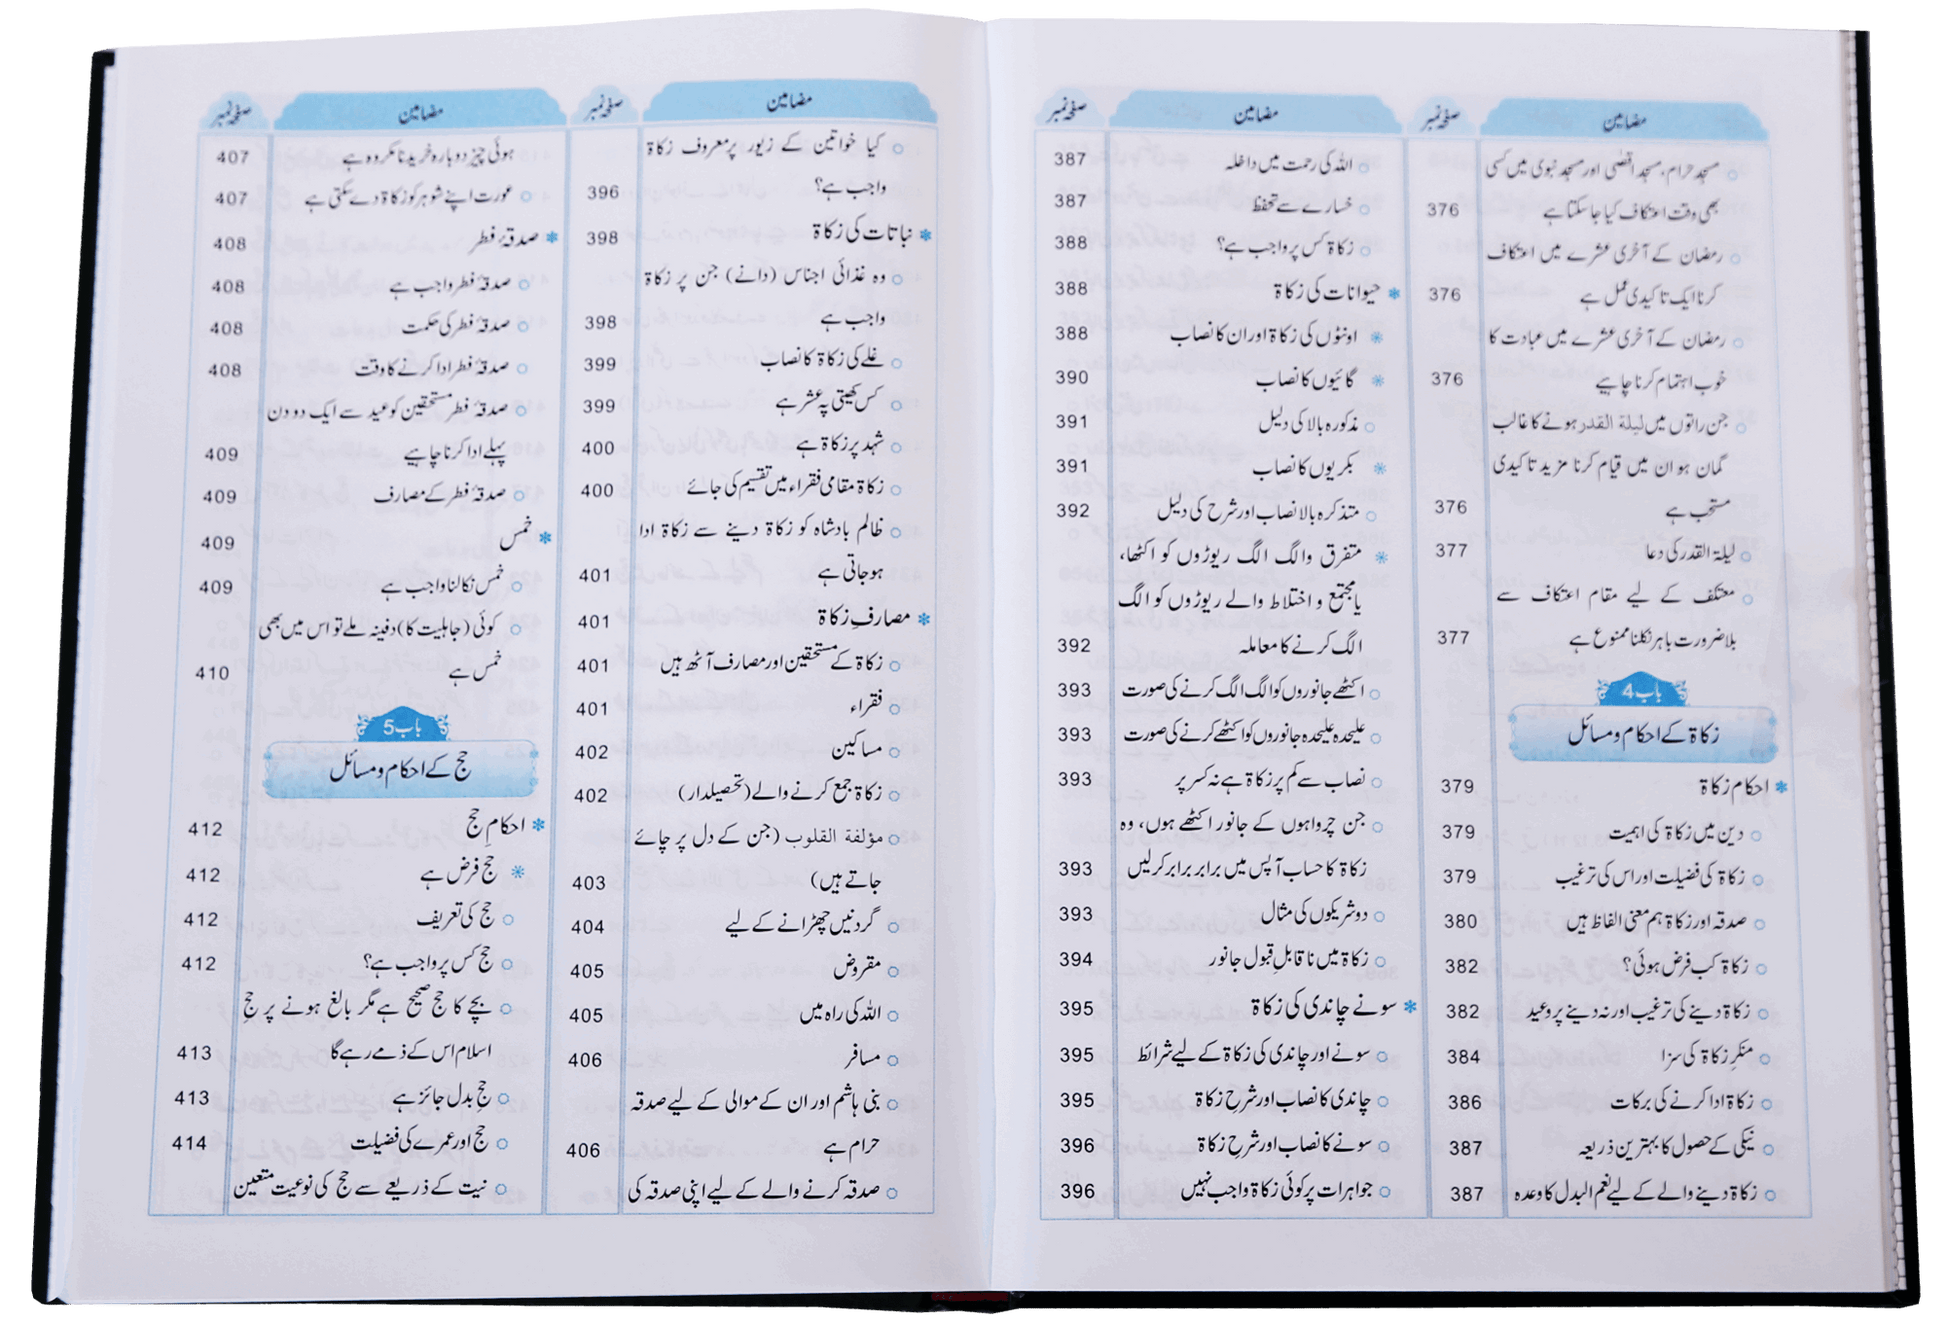 مضامین صفحہ نمبر
مسجد حرام، مسجد اقصٰی اور مسجد نبوی میں کسی
بھی وقت اعتکاف کیا جا سکتا ہے 376
رمضان کے آخری عشرے میں اعتکاف
کرنا ایک تاکیدی عمل ہے 376
رمضان کے آخری عشرے میں عبادت کا
خوب اہتمام کرنا چاہیے 376
جن راتوں میں ليلة القدر ہونے کا غالب
گمان ہو ان میں قیام کرنا مزید تاکیدی
مستحب ہے 376
لیلۃ القدر کی دعا 377
معتکف کے لیے مقام اعتکاف سے
بلا ضرورت باہر نکلنا ممنوع ہے 377
باب 4
زکاۃ کے احکام و مسائل
احکام زکاۃ 379
دین میں زکاۃ کی اہمیت 379
زکاۃ کی فضیلت اور اس کی ترغیب 379
صدقہ اور زکاۃ ہم معنی الفاظ ہیں 380
زکاۃ کب فرض ہوئی؟ 382
زکاۃ دینے کی ترغیب اور نہ دینے پر وعید 382
منکرِ زکاۃ کی سزا 384
زکاۃ ادا کرنے کی برکات 386
نیکی کے حصول کا بہترین ذریعہ 387
زکاۃ دینے والے کے لیے نعم البدل کا وعدہ 387
مضامین صفحہ نمبر
اللہ کی رحمت میں داخلہ 387
خسارے سے تحفظ 387
زکاۃ کس پر واجب ہے؟ 388
حیوانات کی زکاۃ 388
اونٹوں کی زکاۃ اور ان کا نصاب 388
گائیوں کا نصاب 390
مذکورہ بالا کی دلیل 391
بکریوں کا نصاب 391
متذکرہ بالا نصاب اور شرح کی دلیل 392
متفرق و الگ الگ ریوڑوں کو اکٹھا،
یا مجتمع و اختلاط والے ریوڑوں کو الگ
الگ کرنے کا معاملہ 392
اکٹھے جانوروں کو الگ الگ کرنے کی صورت 393
علیحدہ علیحدہ جانوروں کو اکٹھے کرنے کی صورت 393
نصاب سے کم پر زکاۃ ہے نہ کسر پر 393
جن چرواہوں کے جانور اکٹھے ہوں، وہ
زکاۃ کا حساب آپس میں برابر برابر کر لیں 393
دو شریکوں کی مثال 393
زکاۃ میں ناقابلِ قبول جانور 394
سونے چاندی کی زکاۃ 395
سونے اور چاندی کی زکاۃ کے لیے شرائط 395
چاندی کا نصاب اور شرحِ زکاۃ 395
سونے کا نصاب اور شرحِ زکاۃ 396
جواہرات پر کوئی زکاۃ واجب نہیں 396
مضامین صفحہ نمبر
کیا خواتین کے زیور پر معروف زکاۃ
واجب ہے؟ 396
نباتات کی زکاۃ 398
وہ غذائی اجناس (دانے) جن پر زکاۃ
واجب ہے 398
غلے کی زکاۃ کا نصاب 399
کس کھیتی پہ عشر ہے 399
شہد پر زکاۃ ہے 400
زکاۃ مقامی فقراء میں تقسیم کی جائے 400
ظالم بادشاہ کو زکاۃ دینے سے زکاۃ ادا
ہو جاتی ہے 401
مصارفِ زکاۃ 401
زکاۃ کے مستحقین اور مصارف آٹھ ہیں 401
فقراء 401
مساکین 402
زکاۃ جمع کرنے والے (تحصیلدار) 402
مؤلفة القلوب (جن کے دل پر چائے
جاتے ہیں) 403
گردنیں چھڑانے کے لیے 404
مقروض 405
اللہ کی راہ میں 405
مسافر 406
بنی ہاشم اور ان کے موالی کے لیے صدقہ
حرام ہے 406
صدقہ کرنے والے کے لیے اپنی صدقہ کی
مضامین صفحہ نمبر
ہوئی چیز دوبارہ خریدنا مکروہ ہے 407
عورت اپنے شوہر کو زکاۃ دے سکتی ہے 407
صدقۂ فطر 408
صدقۂ فطر واجب ہے 408
صدقۂ فطر کی حکمت 408
صدقۂ فطر ادا کرنے کا وقت 408
صدقۂ فطر مستحقین کو عید سے ایک دو دن
پہلے ادا کرنا چاہیے 409
صدقۂ فطر کے مصارف 409
خمس 409
خمس نکالنا واجب ہے 409
کوئی (جاہلیت کا) دفینہ ملے تو اس میں بھی
خمس ہے 410
باب 5
حج کے احکام و مسائل
احکامِ حج 412
حج فرض ہے 412
حج کی تعریف 412
حج کس پر واجب ہے؟ 412
بچے کا حج صحیح ہے مگر بالغ ہونے پر حجِ
اسلام اس کے ذمے رہے گا 413
حجِ بدل جائز ہے 413
حج اور عمرے کی فضیلت 414
نیت کے ذریعے سے حج کی نوعیت متعین